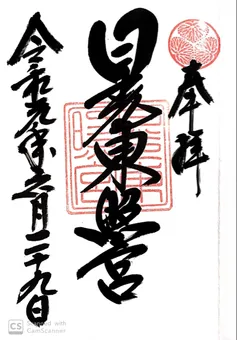 奉拝
日光東照宮
令和元年六月二十九日
CS Scanned with
CamScanner